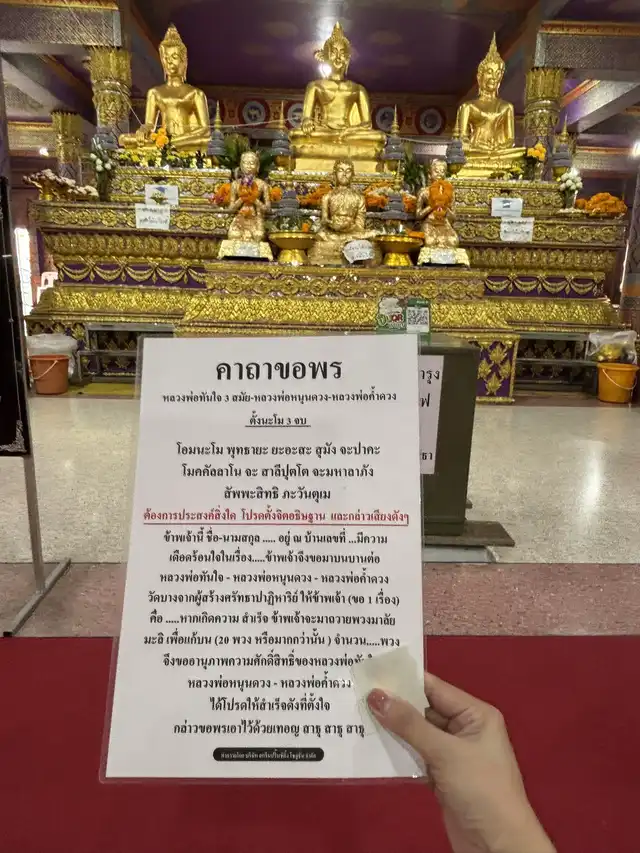 คาถาขอพร
หลวงพ่อทันใจ 3 สมัย-หลวงพ่อหนุนดวง-หลวงพ่อค้ำดวง
ตั้งนะโม 3 จบ
โอมนะโม พุทธายะ ยะอะสะ สุมัง จะปาคะ
โมคคัลลาโน จะ สาลีปุตโต จะมหาลาภัง
สัพพะสิทธิ ภะวันตุเม
ต้องการประสงค์สิ่งใด โปรดตั้งจิตอธิษฐาน และกล่าวเสียงดังๆ
ข้าพเจ้านี้ ชื่อ-นามสกุล ..... อยู่ ณ บ้านเลขที่ ...มีความ
เดือดร้อนใจในเรื่อง.....ข้าพเจ้าจึงขอมาบนบานต่อ
หลวงพ่อทันใจ - หลวงพ่อหนุนดวง - หลวงพ่อค้ำดวง
วัดบางจากผู้สร้างศรัทธาปาฏิหาริย์ ให้ข้าพเจ้า (ขอ 1 เรื่อง)
คือ .....หากเกิดความ สำเร็จ ข้าพเจ้าจะมาถวายพวงมาลัย
มะลิ เพื่อแก้บน (20 พวง หรือมากกว่านั้น ) จำนวน.....พวง
จึงขออานุภาพความศักดิ์สิทธิ์ของหลวงพ่อทันใจ
หลวงพ่อหนุนดวง - หลวงพ่อค้ำดวง
ได้โปรดให้สำเร็จดังที่ตั้งใจ
กล่าวขอพรเอาไว้ด้วยเทอญ สาธุ สาธุ สาธุ